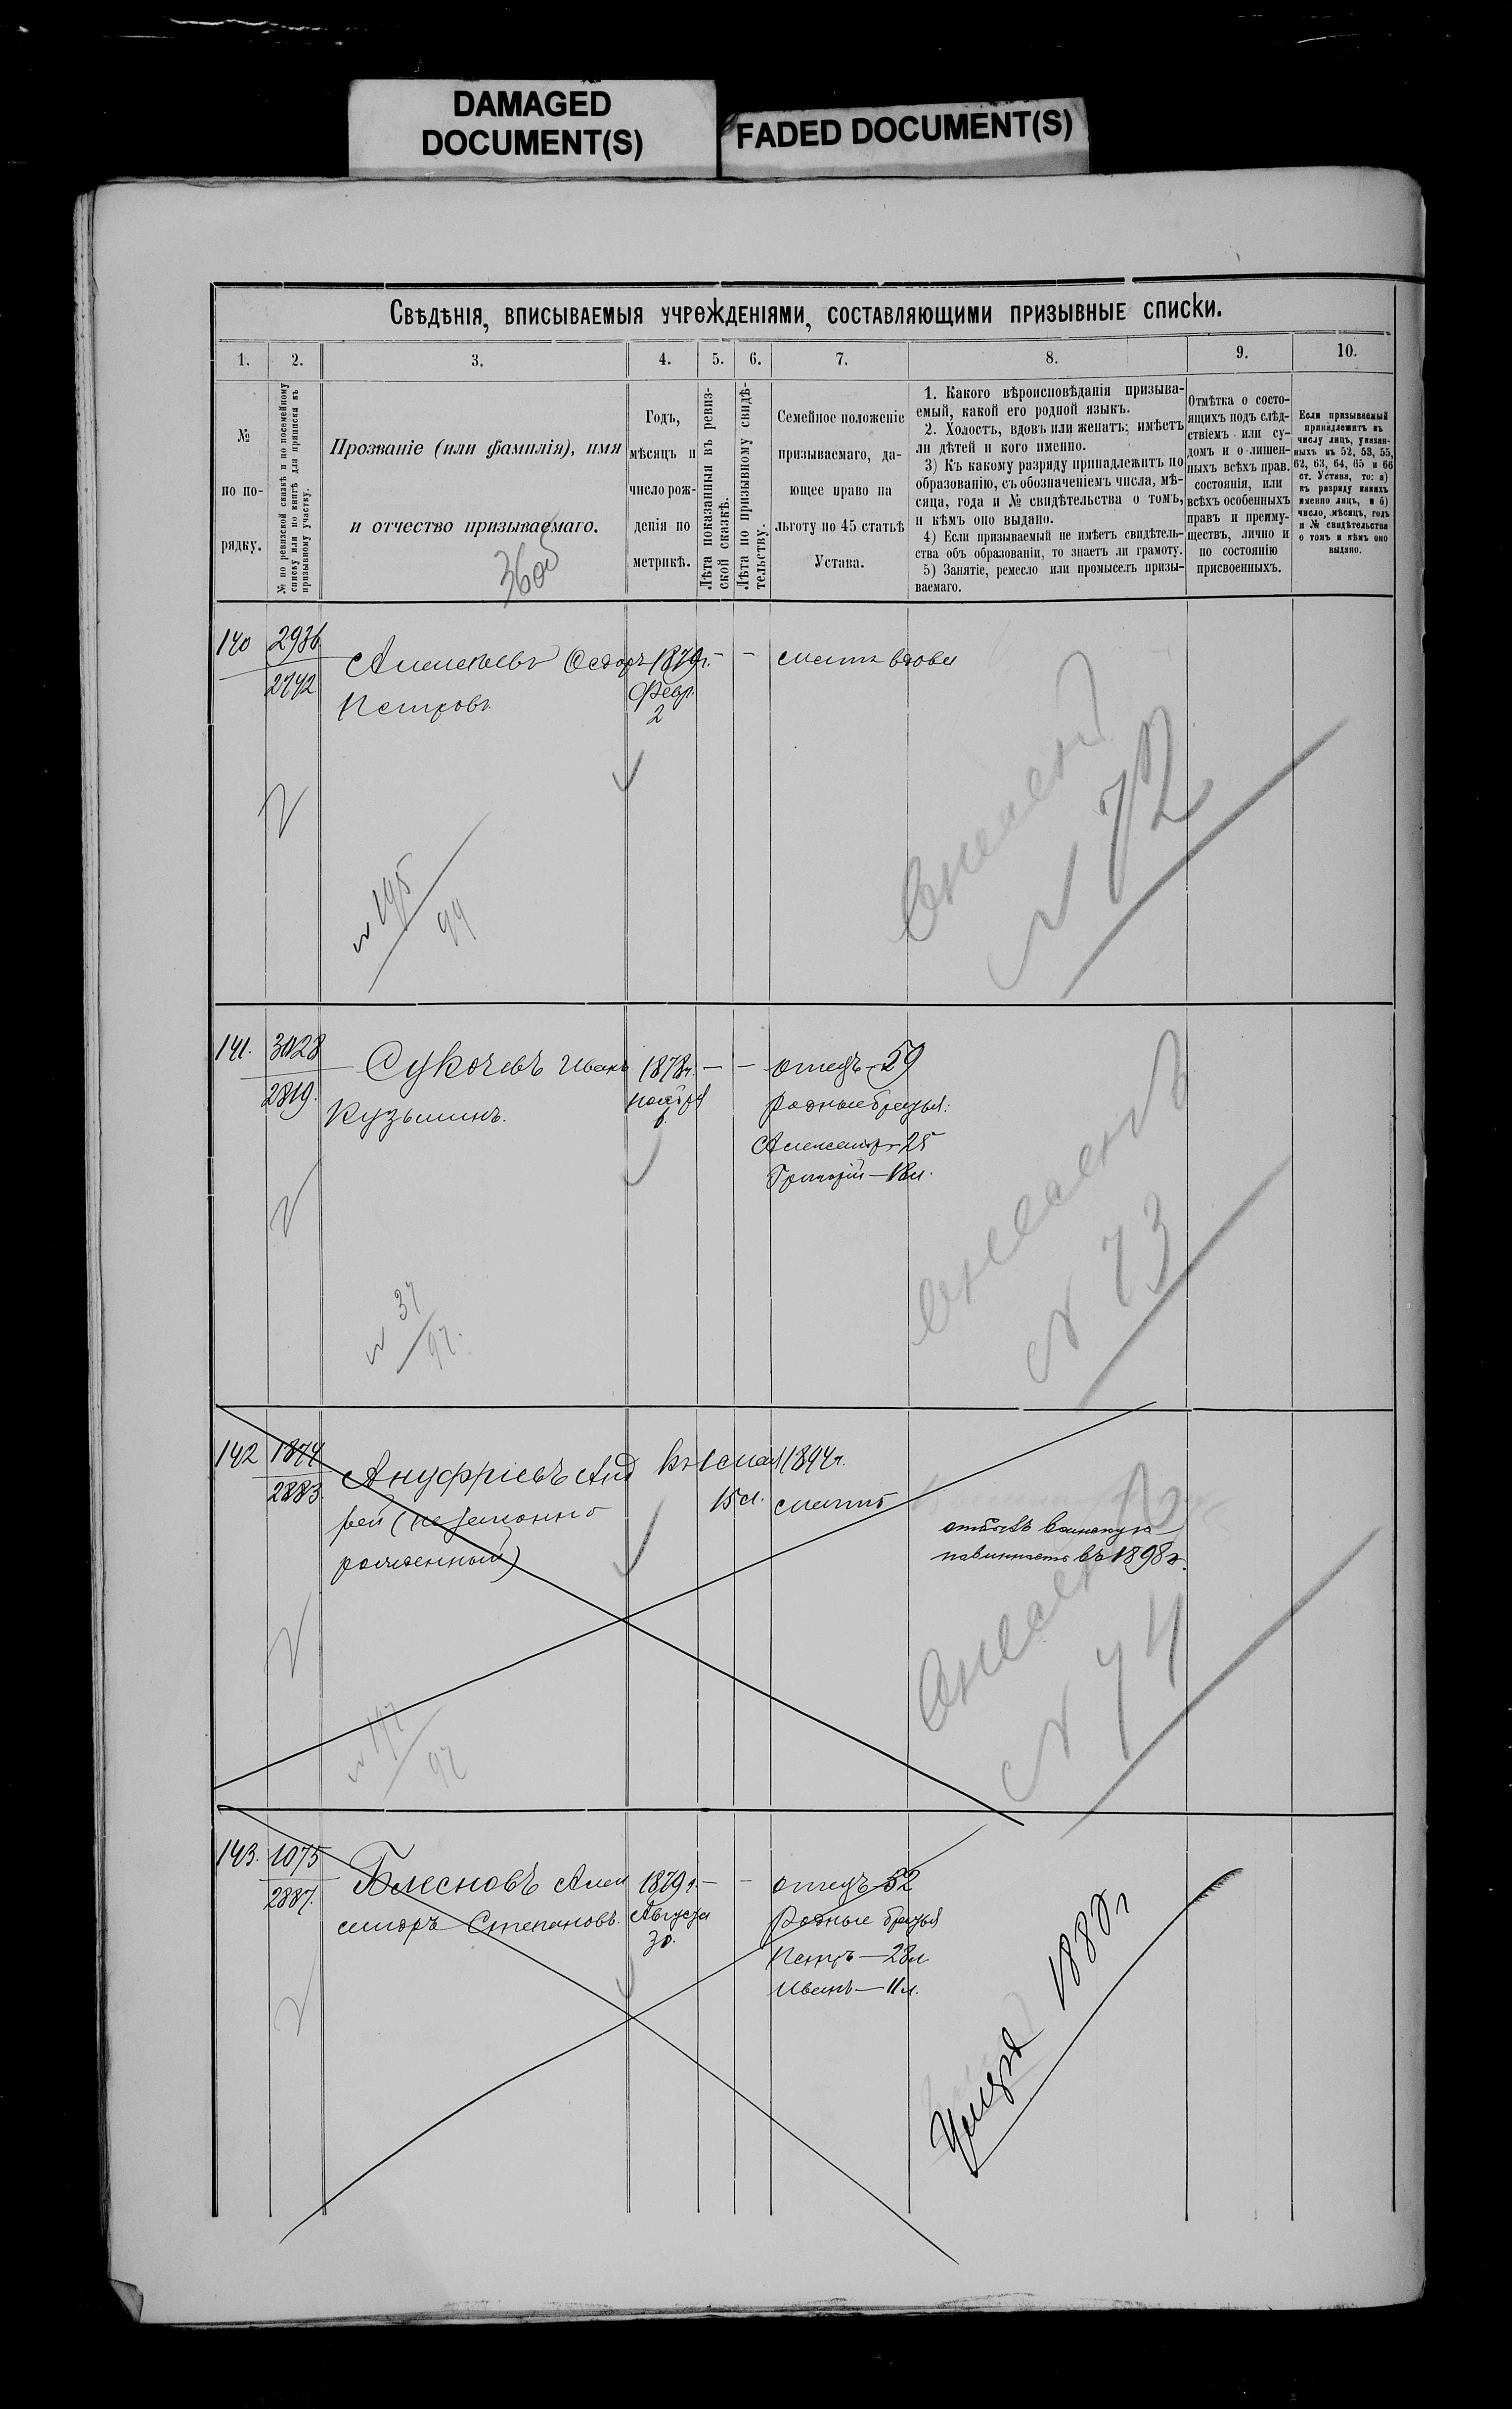 DAMAGED
DOCUMENT(S)
FADED DOCUMENT(S)
Свѣдѣнія, вписываемыя учрежденіями, составляющими призывные списки.
1.
2.
3.
4.
5.
6.
7.
8.
9.
10.
№
по по-
рядку.
№ по ревизской сказкѣ и по посемейному
списку или по книгѣ для приписки къ
призывному участку.
Прозваніе (или фамилія), имя
и отчество призываемаго.
Годъ,
мѣсяцъ и
число рож-
денія по
метрикѣ.
Лѣта показанныя въ ревиз-
ской сказкѣ.
Лѣта по призывному свидѣ-
тельству.
Семейное положеніе
призываемаго, да-
ющее право на
льготу по 45 статьѣ
Устава.
1. Какого вѣроисповѣданія призыва-
емый, какой его родной языкъ.
2. Холостъ, вдовъ или женатъ; имѣетъ
ли дѣтей и кого именно.
3) Къ какому разряду принадлежитъ по
образованію, съ обозначеніемъ числа, мѣ-
сяца, года и № свидѣтельства о томъ,
и кѣмъ оно выдано.
4) Если призываемый не имѣетъ свидѣтель-
ства объ образованіи, то знаетъ ли грамоту.
5) Занятіе, ремесло или промыселъ призы-
ваемаго.
Отмѣтка о состо-
ящихъ подъ слѣд-
ствіемъ или су-
домъ и о лишен-
ныхъ всѣхъ прав.
состоянія, или
всѣхъ особенныхъ
правъ и преиму-
ществъ, лично и
по состоянію
присвоенныхъ.
Если призываемый
принадлежитъ къ
числу лицъ, указан-
ныхъ въ 52, 53, 55,
62, 63, 64, 65 и 66
ст. Устава, то: а)
къ разряду какихъ
именно лицъ, и б)
число, мѣсяцъ, годъ
и № свидѣтельства
о томъ и кѣмъ оно
выдано.
140
2936
2742
Алексѣевъ Ѳедоръ
Петровъ
1879г.
Февр.
2
— —
мать вдова
№ 195
99
Внесенъ
№ 72
141.
3028
2819.
Сукочевъ Иванъ
Кузьминъ.
1878г.
ноября
— —
отецъ - 59
родные братья:
Александръ 25
Григорій — 18л.
№ 37
97.
Внесенъ
№ 73
142
1874
2883.
Ануфріевъ Анд
рей (незаконно
рожденный)
Къ 1 мая 1894г.
15 л.
мать
отбылъ воинскую
повинность въ 1898г.
№ 197
97
Внесенъ
№ 74
143.
1075
2887.
Блесновъ Алек
сандръ Степановъ.
1879г.
Августа
30.
— —
отецъ 52
Родные братья
Петръ — 28л
Иванъ — 11л.
1880г